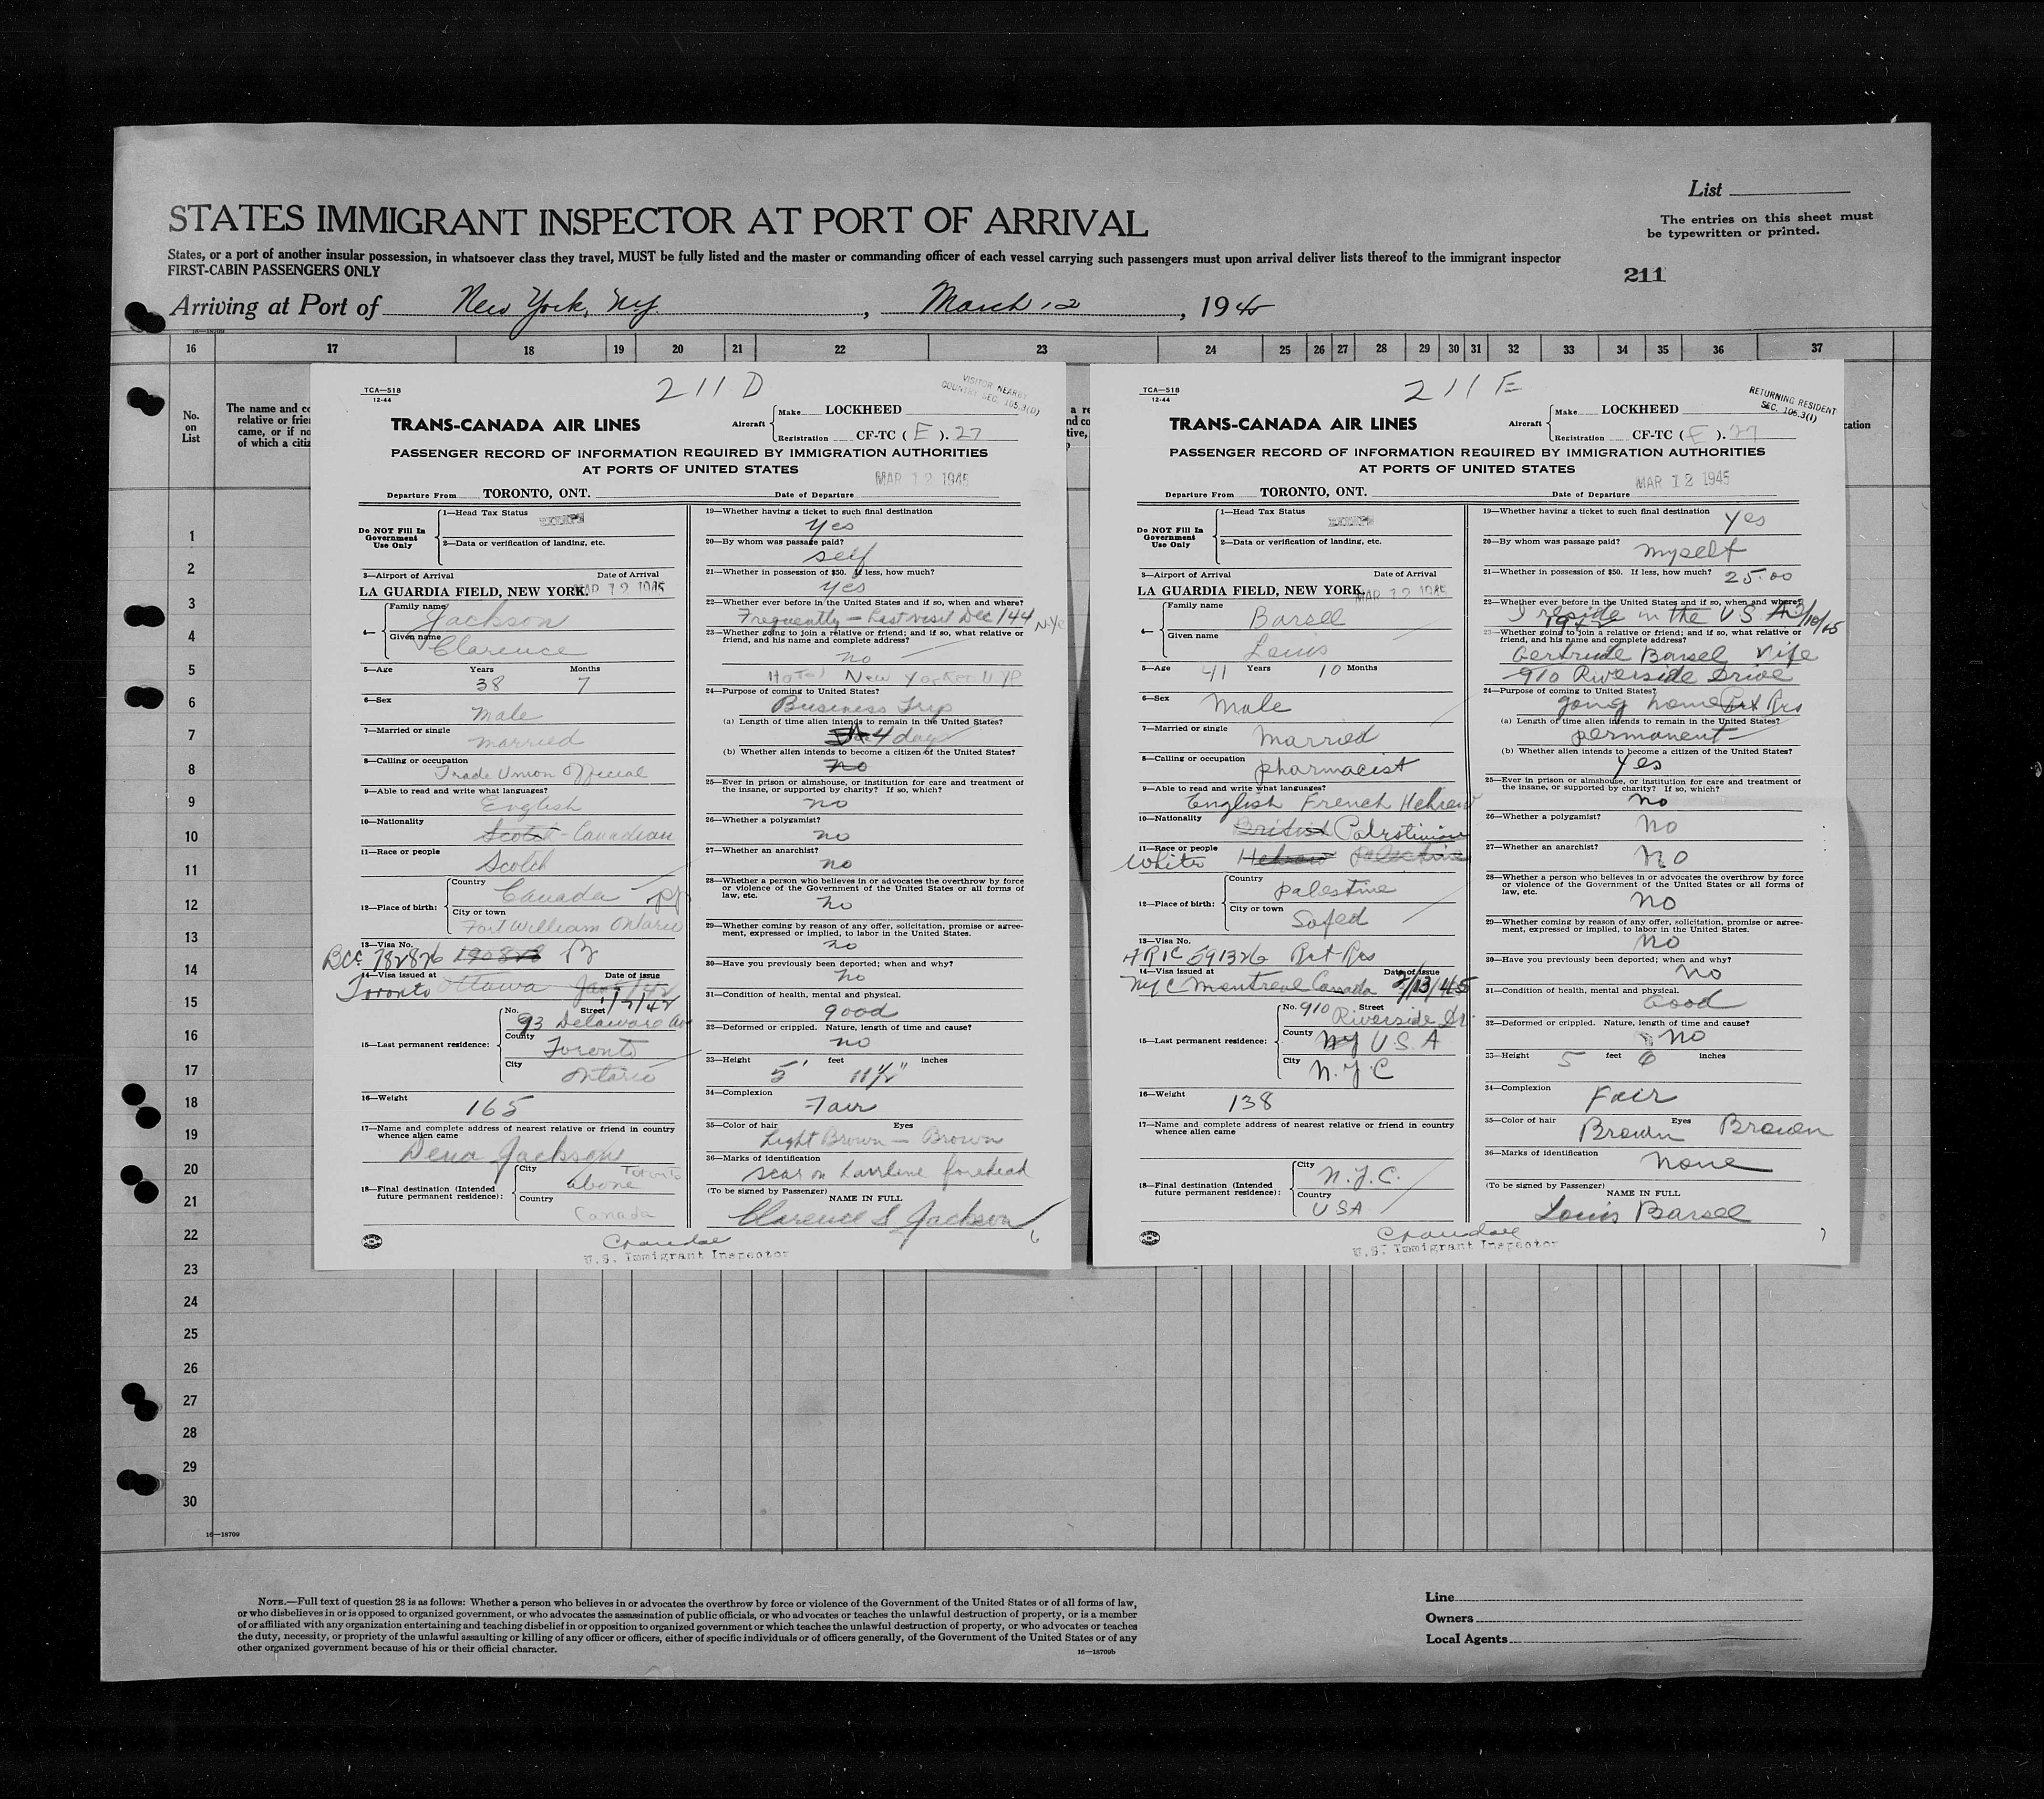 List
The entries on this sheet must
be typewritten or printed.
STATES IMMIGRANT INSPECTOR AT PORT OF ARRIVAL
States, or a port of another insular possession, in whatsoever class they travel, MUST be fully listed and the master or commanding officer of each vessel carrying such passengers must upon arrival deliver lists thereof to the immigrant inspector
FIRST-CABIN PASSENGERS ONLY
211
Arriving at Port of New York, N.Y., March 12, 1945
16—18709
16 17 18 19 20 21 22 23 24 25 26 27 28 29 30 31 32 33 34 35 36 37
No.
on
List
The name and co
relative or frie
came, or if no
of which a citi
1
2
3
4
5
6
7
8
9
10
11
12
13
14
15
16
17
18
19
20
21
22
23
24
25
26
27
28
29
30
TCA—518
12-44
211 D
VISITOR NEARBY
COUNTRY SEC. 105.3(D)
TRANS-CANADA AIR LINES
Aircraft
Make LOCKHEED
Registration CF-TC (E). 27
PASSENGER RECORD OF INFORMATION REQUIRED BY IMMIGRATION AUTHORITIES
AT PORTS OF UNITED STATES
Departure From TORONTO, ONT. Date of Departure MAR 12 1945
Do NOT Fill In
Government
Use Only
1—Head Tax Status EXEMPT
2—Data or verification of landing, etc.
3—Airport of Arrival Date of Arrival
LA GUARDIA FIELD, NEW YORK. MAR 12 1945
4— Family name Jackson
Given name Clarence
5—Age Years Months
38 7
6—Sex
Male
7—Married or single
Married
8—Calling or occupation
Trade Union Official
9—Able to read and write what languages?
English
10—Nationality
Scotch - Canadian
11—Race or people
Scotch
12—Place of birth: Country
Canada
City or town
Fort William Ontario
13—Visa No.
BCC 782826
14—Visa issued at Date of issue
Toronto Ottawa
1/2/42
15—Last permanent residence: No. Street
93 Delaware Ave
County
Toronto
City
Ontario
16—Weight
165
17—Name and complete address of nearest relative or friend in country
whence alien came
Dena Jackson
18—Final destination (Intended
future permanent residence):
City
above Toronto
Country
Canada
19—Whether having a ticket to such final destination
Yes
20—By whom was passage paid?
self
21—Whether in possession of $50. If less, how much?
Yes
22—Whether ever before in the United States and if so, when and where?
Frequently — Last visit Dec/44 NYC
23—Whether going to join a relative or friend; and if so, what relative or
friend, and his name and complete address?
no
Hotel New Yorker NYC
24—Purpose of coming to United States?
Business Trip
(a) Length of time alien intends to remain in the United States?
4 days
(b) Whether alien intends to become a citizen of the United States?
no
25—Ever in prison or almshouse, or institution for care and treatment of
the insane, or supported by charity? If so, which?
no
26—Whether a polygamist?
no
27—Whether an anarchist?
no
28—Whether a person who believes in or advocates the overthrow by force
or violence of the Government of the United States or all forms of
law, etc.
no
29—Whether coming by reason of any offer, solicitation, promise or agree-
ment, expressed or implied, to labor in the United States.
no
30—Have you previously been deported; when and why?
no
31—Condition of health, mental and physical.
good
32—Deformed or crippled. Nature, length of time and cause?
no
33—Height feet inches
5' 11½"
34—Complexion
Fair
35—Color of hair Eyes
Light Brown — Brown
36—Marks of identification
scar on hairline forehead
(To be signed by Passenger) NAME IN FULL
Clarence S Jackson
6
Crandall
U.S. Immigrant Inspector
TCA—518
12-44
211 E
RETURNING RESIDENT
SEC. 105.3(I)
TRANS-CANADA AIR LINES
Aircraft
Make LOCKHEED
Registration CF-TC (E). 27
PASSENGER RECORD OF INFORMATION REQUIRED BY IMMIGRATION AUTHORITIES
AT PORTS OF UNITED STATES
Departure From TORONTO, ONT. Date of Departure MAR 12 1945
Do NOT Fill In
Government
Use Only
1—Head Tax Status EXEMPT
2—Data or verification of landing, etc.
3—Airport of Arrival Date of Arrival
LA GUARDIA FIELD, NEW YORK. MAR 12 1945
4— Family name Barsel
Given name Louis
5—Age 41 Years 10 Months
6—Sex
Male
7—Married or single
Married
8—Calling or occupation
pharmacist
9—Able to read and write what languages?
English French Hebrew
10—Nationality
British Palestinian
11—Race or people
White Hebrew Palestine
12—Place of birth: Country
Palestine
City or town
Safed
13—Visa No.
ARIC 591326 Ret Res
14—Visa issued at Date of issue
NYC Montreal Canada 2/13/45
15—Last permanent residence: No. 910 Street
Riverside Dr.
County
NY USA
City
N.Y.C
16—Weight
138
17—Name and complete address of nearest relative or friend in country
whence alien came
18—Final destination (Intended
future permanent residence):
City
N.Y.C.
Country
USA
19—Whether having a ticket to such final destination
Yes
20—By whom was passage paid?
myself
21—Whether in possession of $50. If less, how much? 25.00
22—Whether ever before in the United States and if so, when and where?
I reside in the USA
23—Whether going to join a relative or friend; and if so, what relative or
friend, and his name and complete address?
Gertrude Barsel Wife
910 Riverside Drive
24—Purpose of coming to United States?
going home Ret Res
(a) Length of time alien intends to remain in the United States?
permanent
(b) Whether alien intends to become a citizen of the United States?
Yes
25—Ever in prison or almshouse, or institution for care and treatment of
the insane, or supported by charity? If so, which?
no
26—Whether a polygamist?
No
27—Whether an anarchist?
No
28—Whether a person who believes in or advocates the overthrow by force
or violence of the Government of the United States or all forms of
law, etc.
No
29—Whether coming by reason of any offer, solicitation, promise or agree-
ment, expressed or implied, to labor in the United States.
No
30—Have you previously been deported; when and why?
No
31—Condition of health, mental and physical.
Good
32—Deformed or crippled. Nature, length of time and cause?
No
33—Height 5 feet 6 inches
34—Complexion
Fair
35—Color of hair Eyes
Brown Brown
36—Marks of identification
None
(To be signed by Passenger) NAME IN FULL
Louis Barsel
7
Crandall
U.S. Immigrant Inspector
16—18709
NOTE.—Full text of question 28 is as follows: Whether a person who believes in or advocates the overthrow by force or violence of the Government of the United States or of all forms of law,
or who disbelieves in or is opposed to organized government, or who advocates the assassination of public officials, or who advocates or teaches the unlawful destruction of property, or is a member
of or affiliated with any organization entertaining and teaching disbelief in or opposition to organized government or which teaches the unlawful destruction of property, or who advocates or teaches
the duty, necessity, or propriety of the unlawful assaulting or killing of any officer or officers, either of specific individuals or of officers generally, of the Government of the United States or of any
other organized government because of his or their official character.
16—18709b
Line
Owners
Local Agents